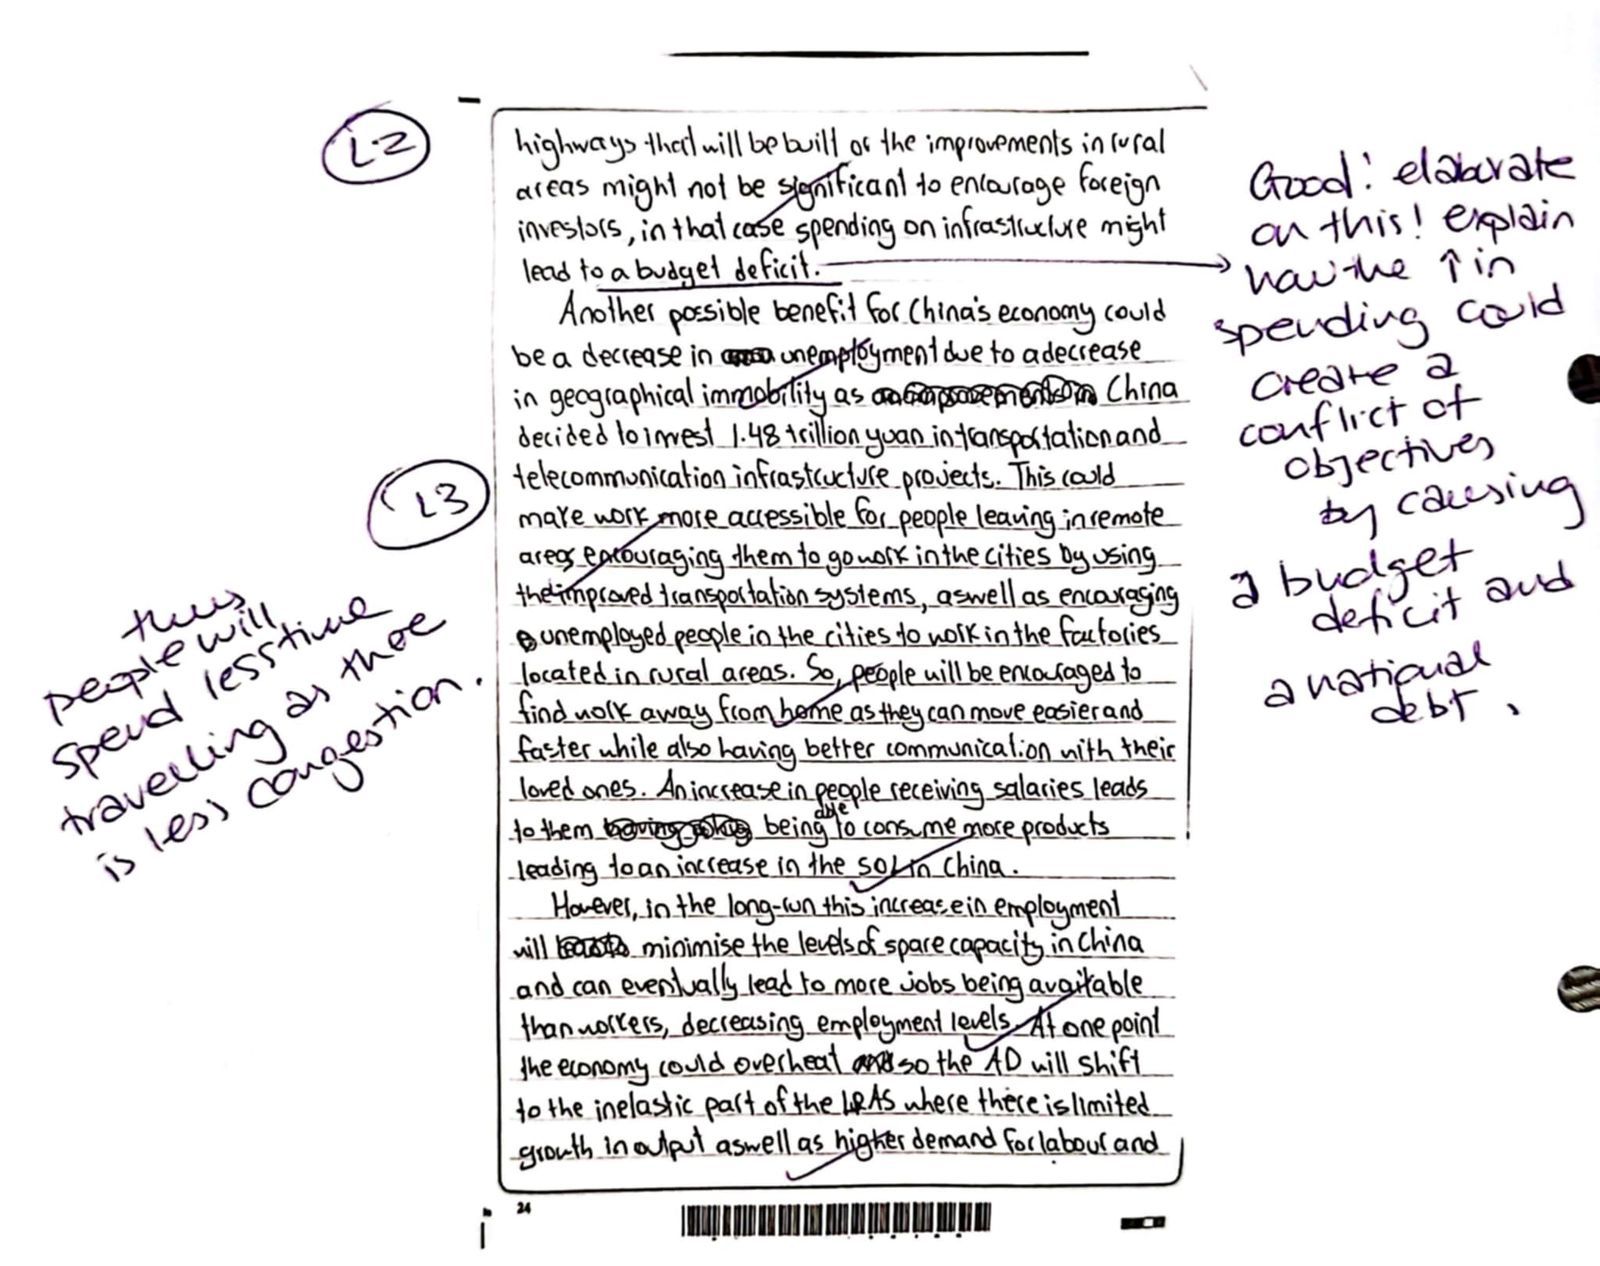 L2
highways that will be built or the improvements in rural
areas might not be significant to encourage foreign
investors, in that case spending on infrastructure might
lead to a budget deficit.
Good! elaborate
on this! explain
how the ↑ in
spending could
create a
conflict of
objectives
by causing
a budget
deficit and
a national
debt.
Another possible benefit for China's economy could
be a decrease in unemployment due to a decrease
in geographical immobility as China
decided to invest 1.48 trillion yuan in transportation and
telecommunication infrastructure projects. This could
L3
make work more accessible for people leaving in remote
areas encouraging them to go work in the cities by using
the improved transportation systems, aswell as encouraging
unemployed people in the cities to work in the factories
located in rural areas. So, people will be encouraged to
find work away from home as they can move easier and
faster while also having better communication with their
loved ones. An increase in people receiving salaries leads
to them being able to consume more products
leading to an increase in the SOL in China.
thus
people will
spend less time
travelling as there
is less congestion.
However, in the long-run this increase in employment
will minimise the levels of spare capacity in China
and can eventually lead to more jobs being available
than workers, decreasing employment levels. At one point
the economy could overheat so the AD will shift
to the inelastic part of the LRAS where there is limited
growth in output aswell as higher demand for labour and
24